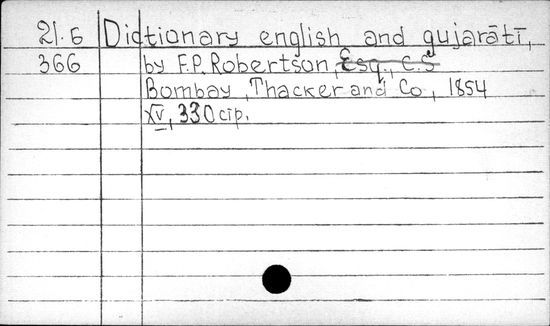 21.6 Dictionary english and gujarātī,
366 by F.P. Robertson, Esq., C.S
Bombay, Thacker and Co, 1854
XV, 330 стр.